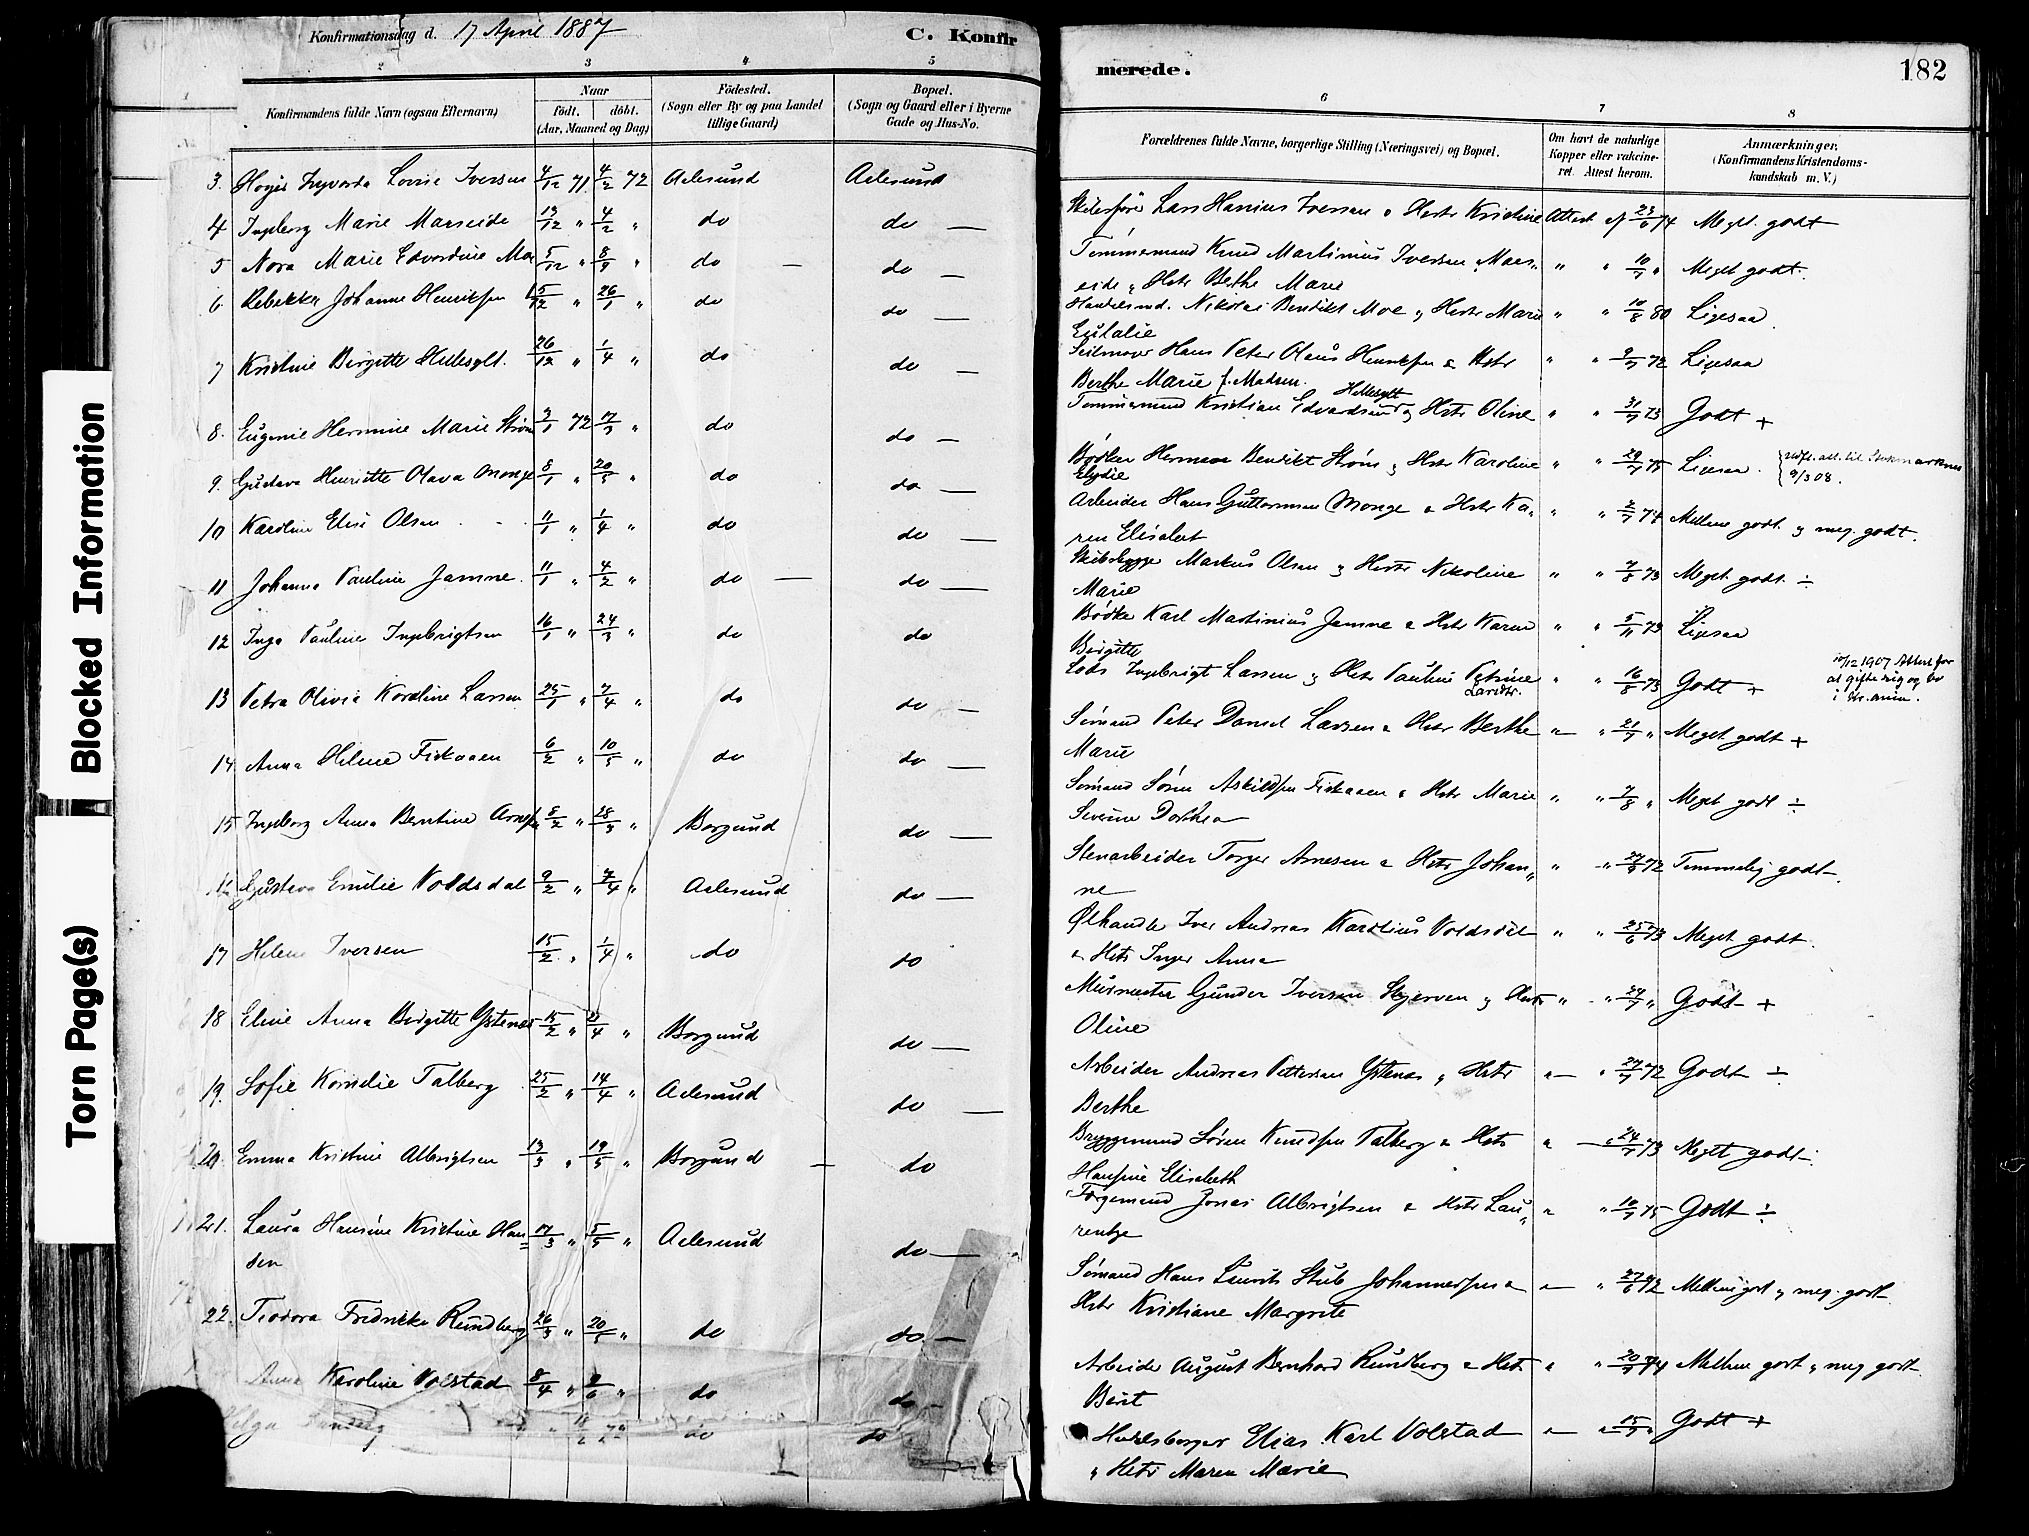 Konfirmationsdag d. 17 April 1887
C. Konfir
merede.
182
1
2
3
4
5
6
7
8
Konfirmandens fulde Navn (ogsaa Efternavn)
Naar
født. døbt.
(Aar, Maaned og Dag)
Fødested.
(Sogn eller By og paa Landet
tillige Gaard)
Bopæl.
(Sogn og Gaard eller i Byerne
Gade og Hus-No.
Forældrenes fulde Navne, borgerlige Stilling (Næringsvei) og Bopæl.
Om havt de naturlige
Kopper eller vaccine-
ret. Attest herom.
Anmærkninger.
(Konfirmandens Kristendoms-
kundskab m. V.)
3. Lovise Iversen 4/12 71 4/2 72 Aalesund Aalesund
4 Ingeborg Marie Marseide 13/12 " 4/2 " do do —
5 Nora Marie Edvardine Moe 5/12 " do — do —
6 Rebekka Johanne Henriksen " 26/1 " do do —
7 Kristine Birgitte Hellesylt. 26/12 " 1/4 " do do —
8. Eugenie Hermine Marie Strøm 3/1 72 17/3 " do do —
9. Gustava Henriette Olava Monge 8/1 " 20/5 " do do —
10 Karoline Elise Olsen 11/1 " 1/4 " do do —
11 Johanna Pauline Jamne. 11/1 " 4/2 " do — do —
12 Inga Pauline Ingebrigtsen 16/1 " 24/3 " do do
13 Petra Olivia Karoline Larsen 25/1 " 7/4 " do do —
14 Anna Helene Fiskaaen 6/2 " 10/5 " do do —
15 Ingeborg Anna Berntine 8/2 " 28/3 " Borgund do —
Gustava Emilie Voldsdal 9/2 " 7/4 " Aalesund do —
17 Helene Iversen 15/2 " 1/4 " do do
18 Eline Anna Birgitte Ystenes 15/2 " /4 " Borgund do —
19. Sofie Kornelie Talberg 25/2 " 14/4 " Aalesund do —
20. Emma Kristine Albrigtsen 13/3 " 19/5 " Borgund — do
21. Laura Hansine Kristine Han 17/3 " 5/5 " Aalesund do —
sen
22. Teodora Fredrikke Rundberg 26/3 " 20/5 " do do —
Anna Karoline Volstad 8/4 " 9/6 " do do
Helga do do
Lars Hansius Iversen & Hstr Kristine Attest af 23/6 74 Meget godt
Tømmermand Knud Martinius Iversen Mars " " 10/7 " Meget godt.
eide & Hstr Berthe Marie
Handelsmd. Nikolai Bendikt Moe & Hstr Marie " " 10/8 80 Ligesaa
Eulalie
Seilmager Hans Peter Olaus Henriksen & Hstr " " 9/7 72 Ligesaa
Berthe Marie f. Madsen.
Hellesylt
Tømmermand Kristian Edvardsen & Hstr Oline " " 31/7 73 Godt +
Bødker Herman Bendikt Strøm & Hstr Karoline " " 29/7 75 Ligesaa.
Elydie
udst. att. til Stokmarknes
9/3 08.
Arbeider Hans Guttormsen Monge & Hstr Ka- " " 2/7 74 Mellem godt & meg. godt.
ren Elisabet
Skibsbygger Markus Olsen & Hstr Nikoline " " 7/8 73 Meget godt ÷
Marie
Bødker Karl Martinius Jamne & Hstr Karen " " 5/11 73 Ligesaa
Birgitte
Lods Ingebrigt Larsen & Hstr Pauline Petrine " " 16/8 73 Godt +
Larsdtr.
10/12 1907 Attest for
at gifte sig og bo
i
Sømand Peter Daniel Larsen & Hstr Berthe " — " 21/7 " Meget godt +
Marie
Sømand Søren Askildsen Fiskaaen & Hstr Marie " " 7/8 " Meget godt ÷
Severine Dorthea
Stenarbeider Torger Arnesen & Hstr Johan " " 72 Temmelig godt
ne
Ølhandler Iver Andreas Karolius Voldsdal " " 25/6 73 Meget godt.
& Hstr Inger Anna
Murmester Gunder Iversen & Hstr " " Godt +
Oline
Arbeider Andreas Pettersen Ystenes & Hstr " — " 27/7 72 Godt ÷
Berthe
Bryggemand Søren Knudsen Talberg & Hstr " — " 24/7 73 Meget godt
Hansine Elisabeth
Jonas Albrigtsen & Hstr Lau " " 10/7 75 Godt ÷
rentze
Sømand Hans Laurits Stub Johannessen & " — " 27/6 72 Mellem godt & meg. godt
Hstr Kristiane Margrete
Arbeider August Bernhard Rundberg & Hstr " " 20/7 74 Mellem godt & meg godt
Berit
Elias Karl Volstad " — " 15/7 " Godt +
& Hstr Maren Marie
Blocked Information
Torn Page(s)